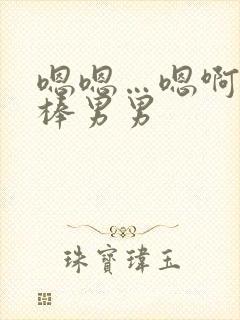 嗯嗯…嗯啊
棒男男
珠寶瑋玉